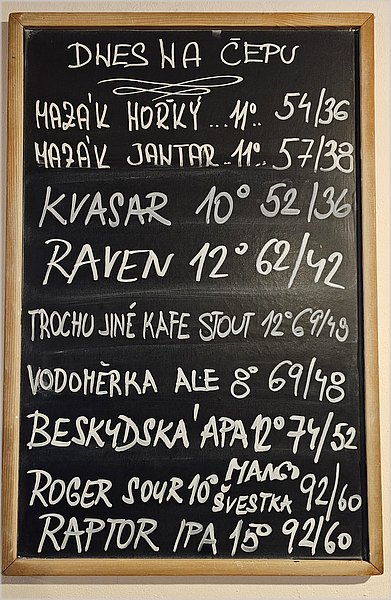 DNES NA ČEPU
MAZÁK HOŘKÝ .. 11°.. 54/36
MAZÁK JANTAR .. 11°.. 57/38
KVASAR 10° 52/36
RAVEN 12° 62/42
TROCHU JINÉ KAFE STOUT 12° 69/49
VODOMĚRKA ALE 8° 69/48
BESKYDSKÁ APA 12° 74/52
ROGER SOUR 10° MANGO ŠVESTKA 92/60
RAPTOR IPA 15° 92/60